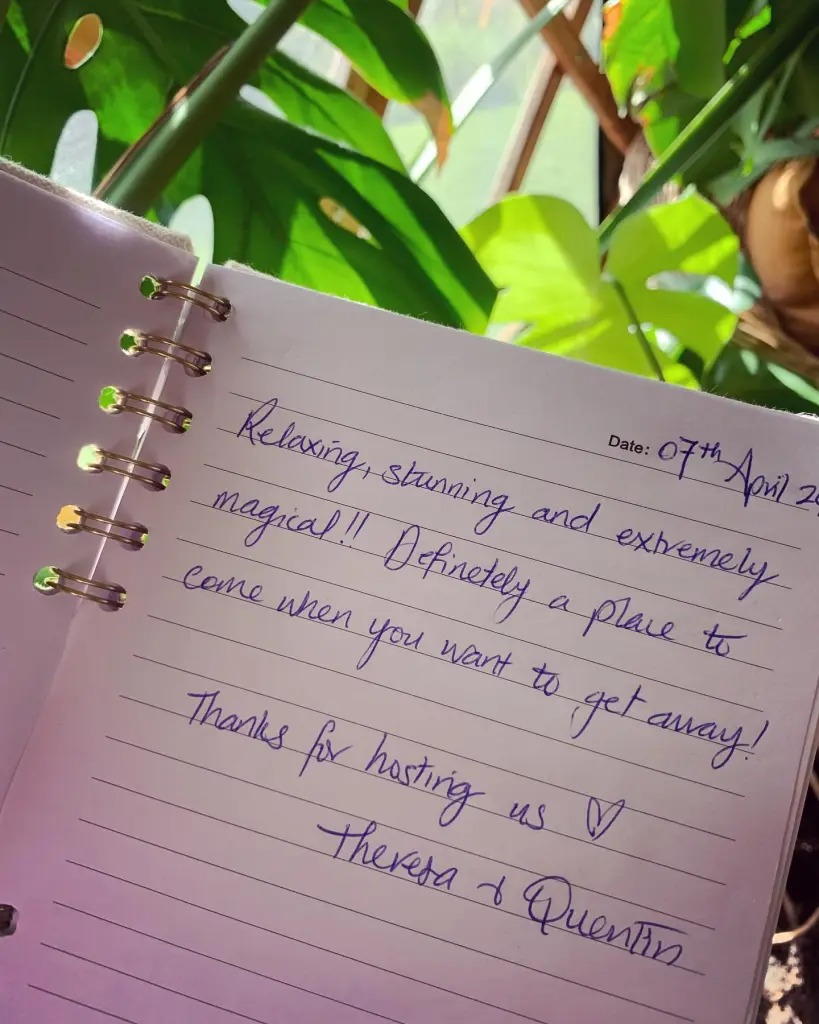 Date: 07th April 20
Relaxing, stunning and extremely
magical!! Definetely a place to
come when you want to get away!
Thanks for hosting us ♡
Theresa & Quentin